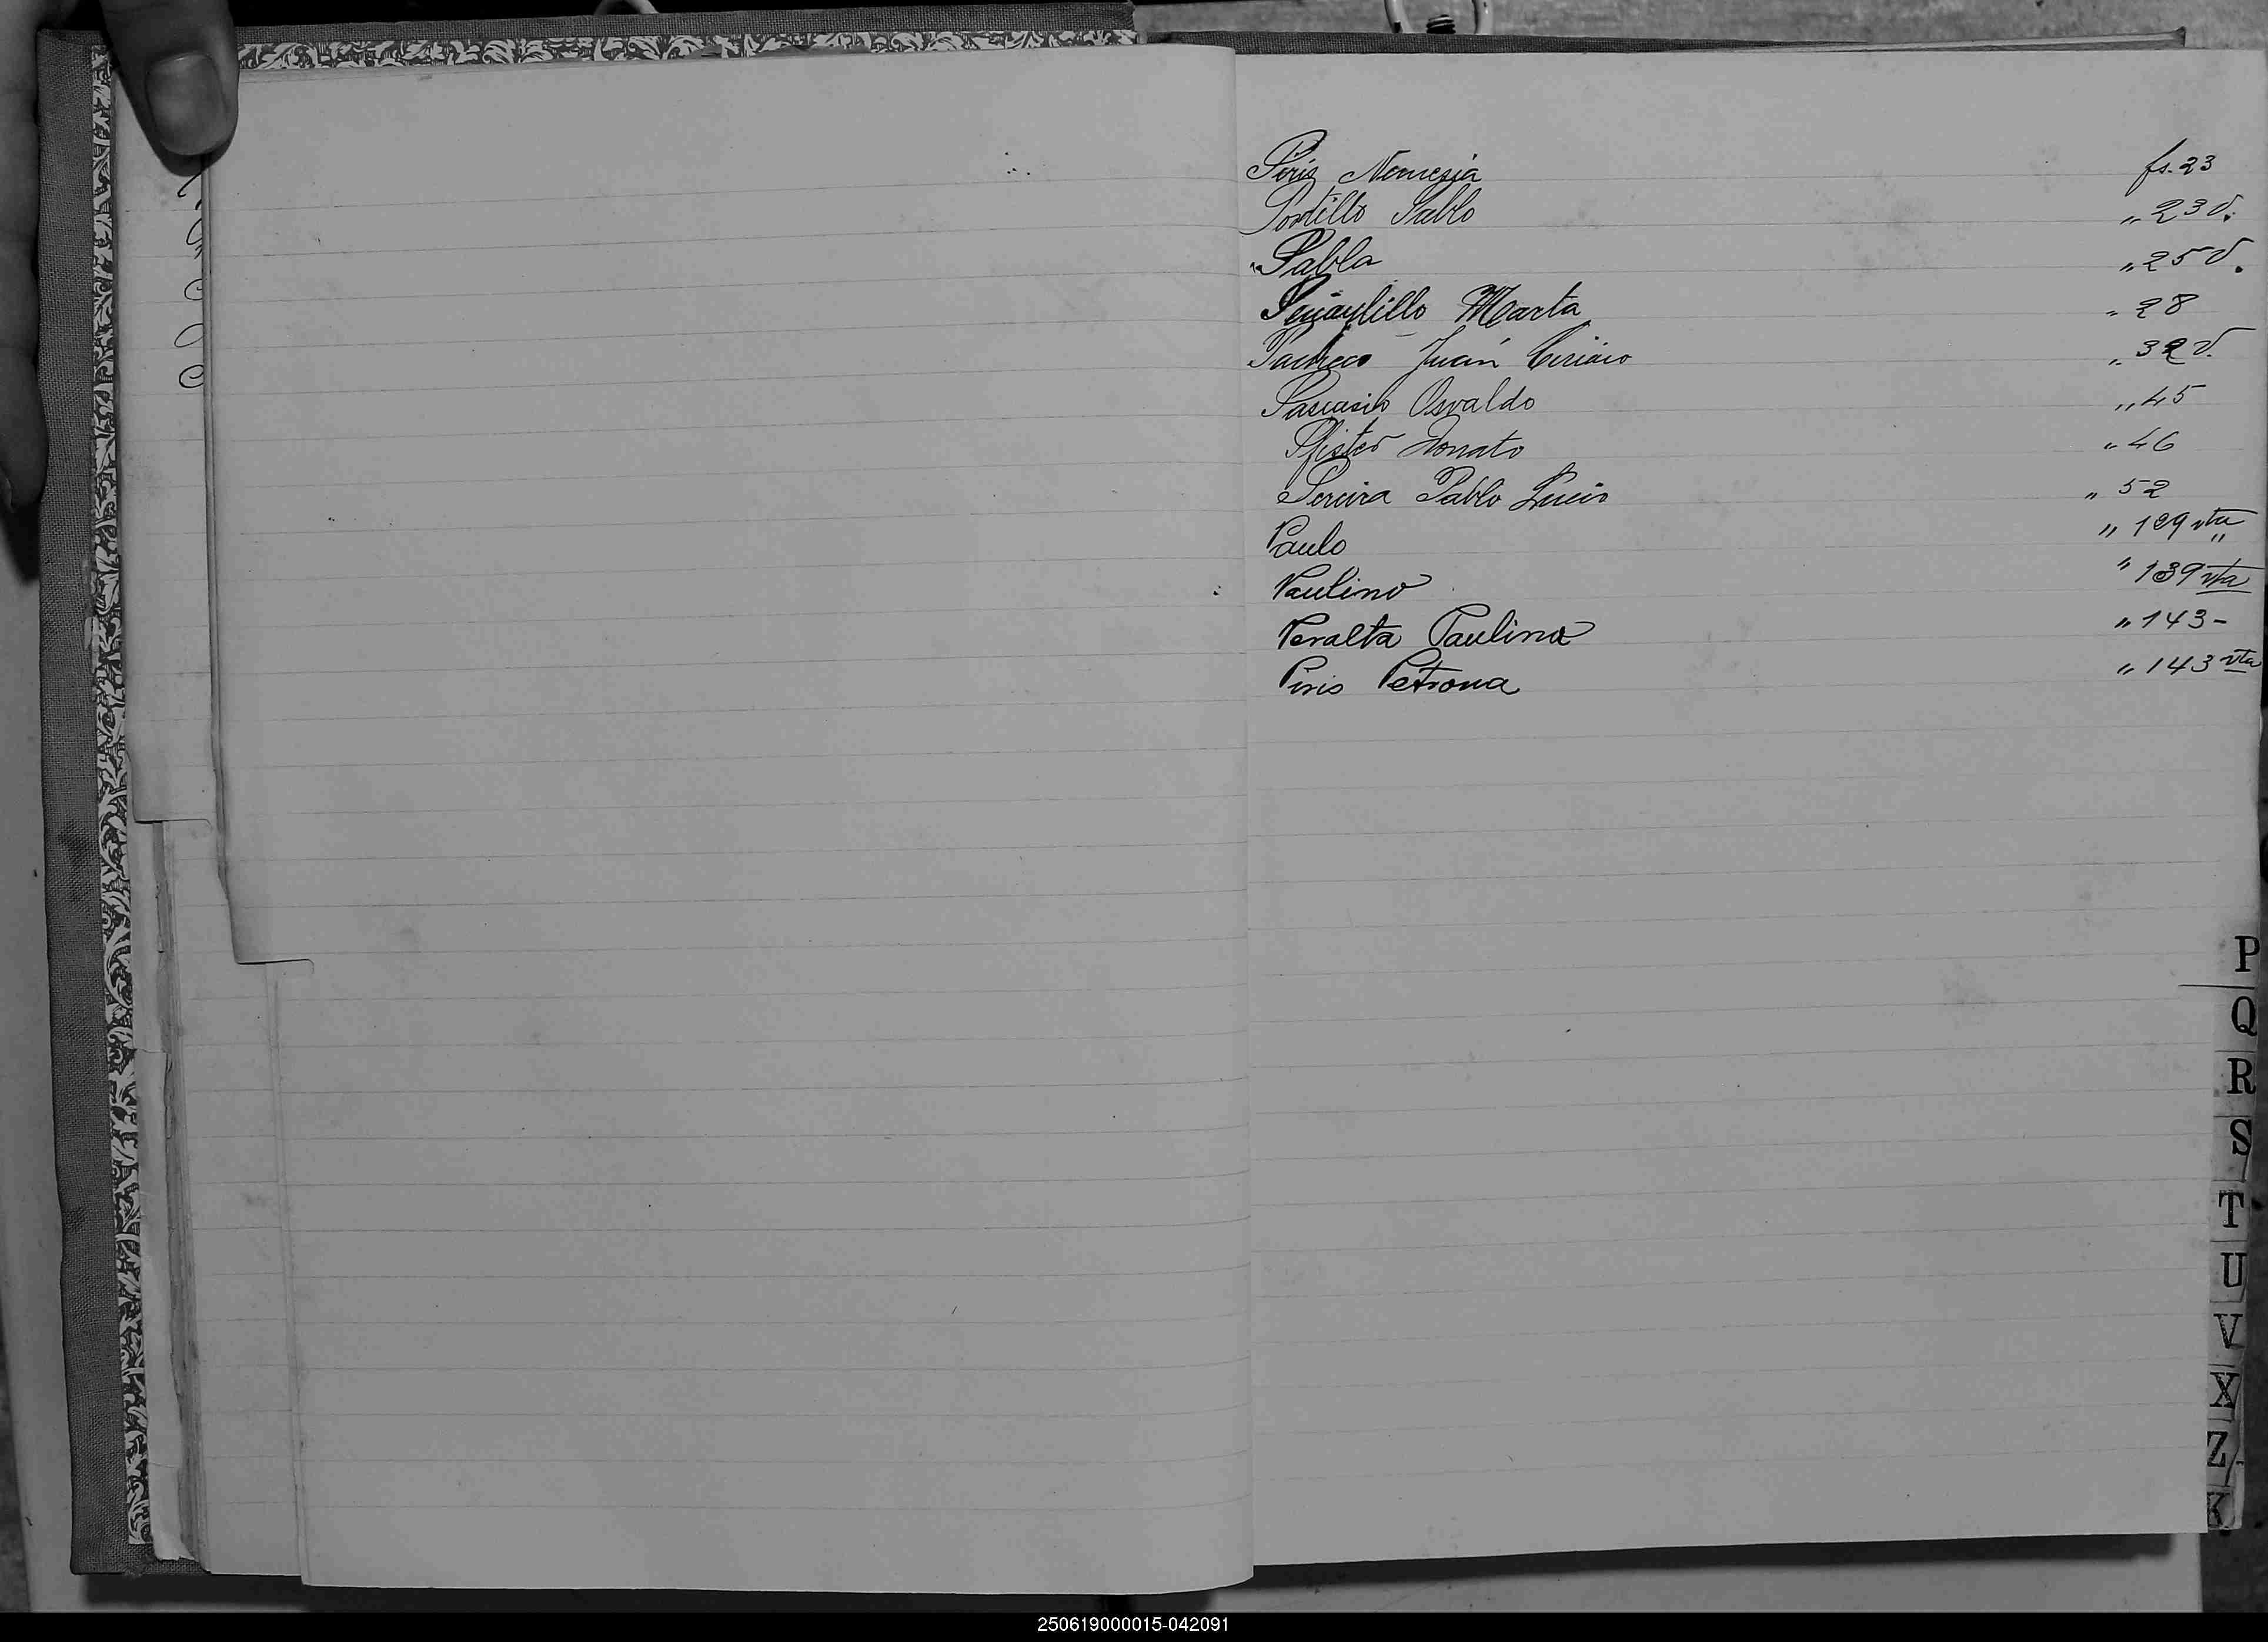 Piris Nemesia fs. 23
Portillo Pablo „ 23 v.
Pabla „ 25 v.
Marta „ 28
Pacheco Juán Ciriaco „ 32 v.
Pascasio Osvaldo „ 45
Pfister Donato „ 46
Pereira Pablo Lucio „ 52
Paulo „ vta
Paulino „ 139 vta
Peralta Paulina „ 143-
Piris Petrona „ 143 vta
P
Q
R
S
T
U
V
X
Z
K
250619000015-042091